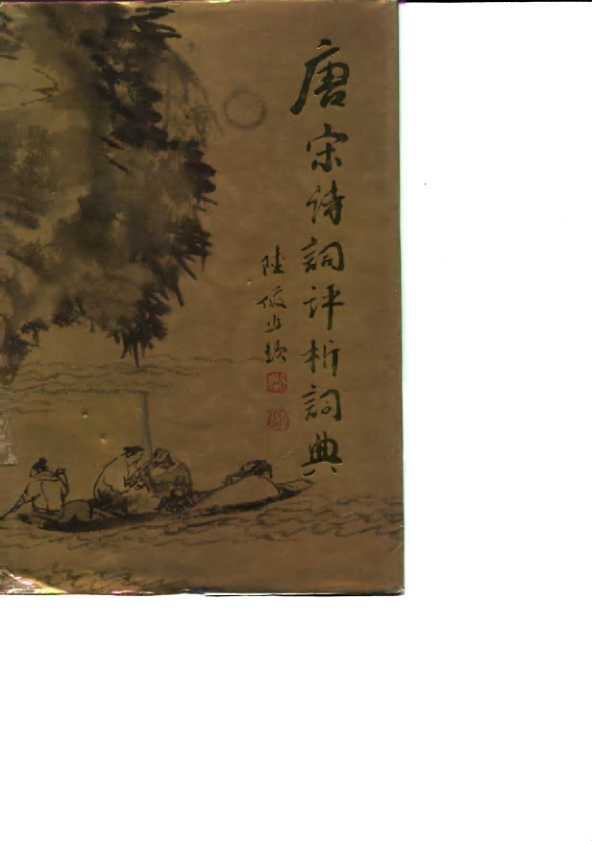 唐宋诗詞评析詞典
陸俨少题